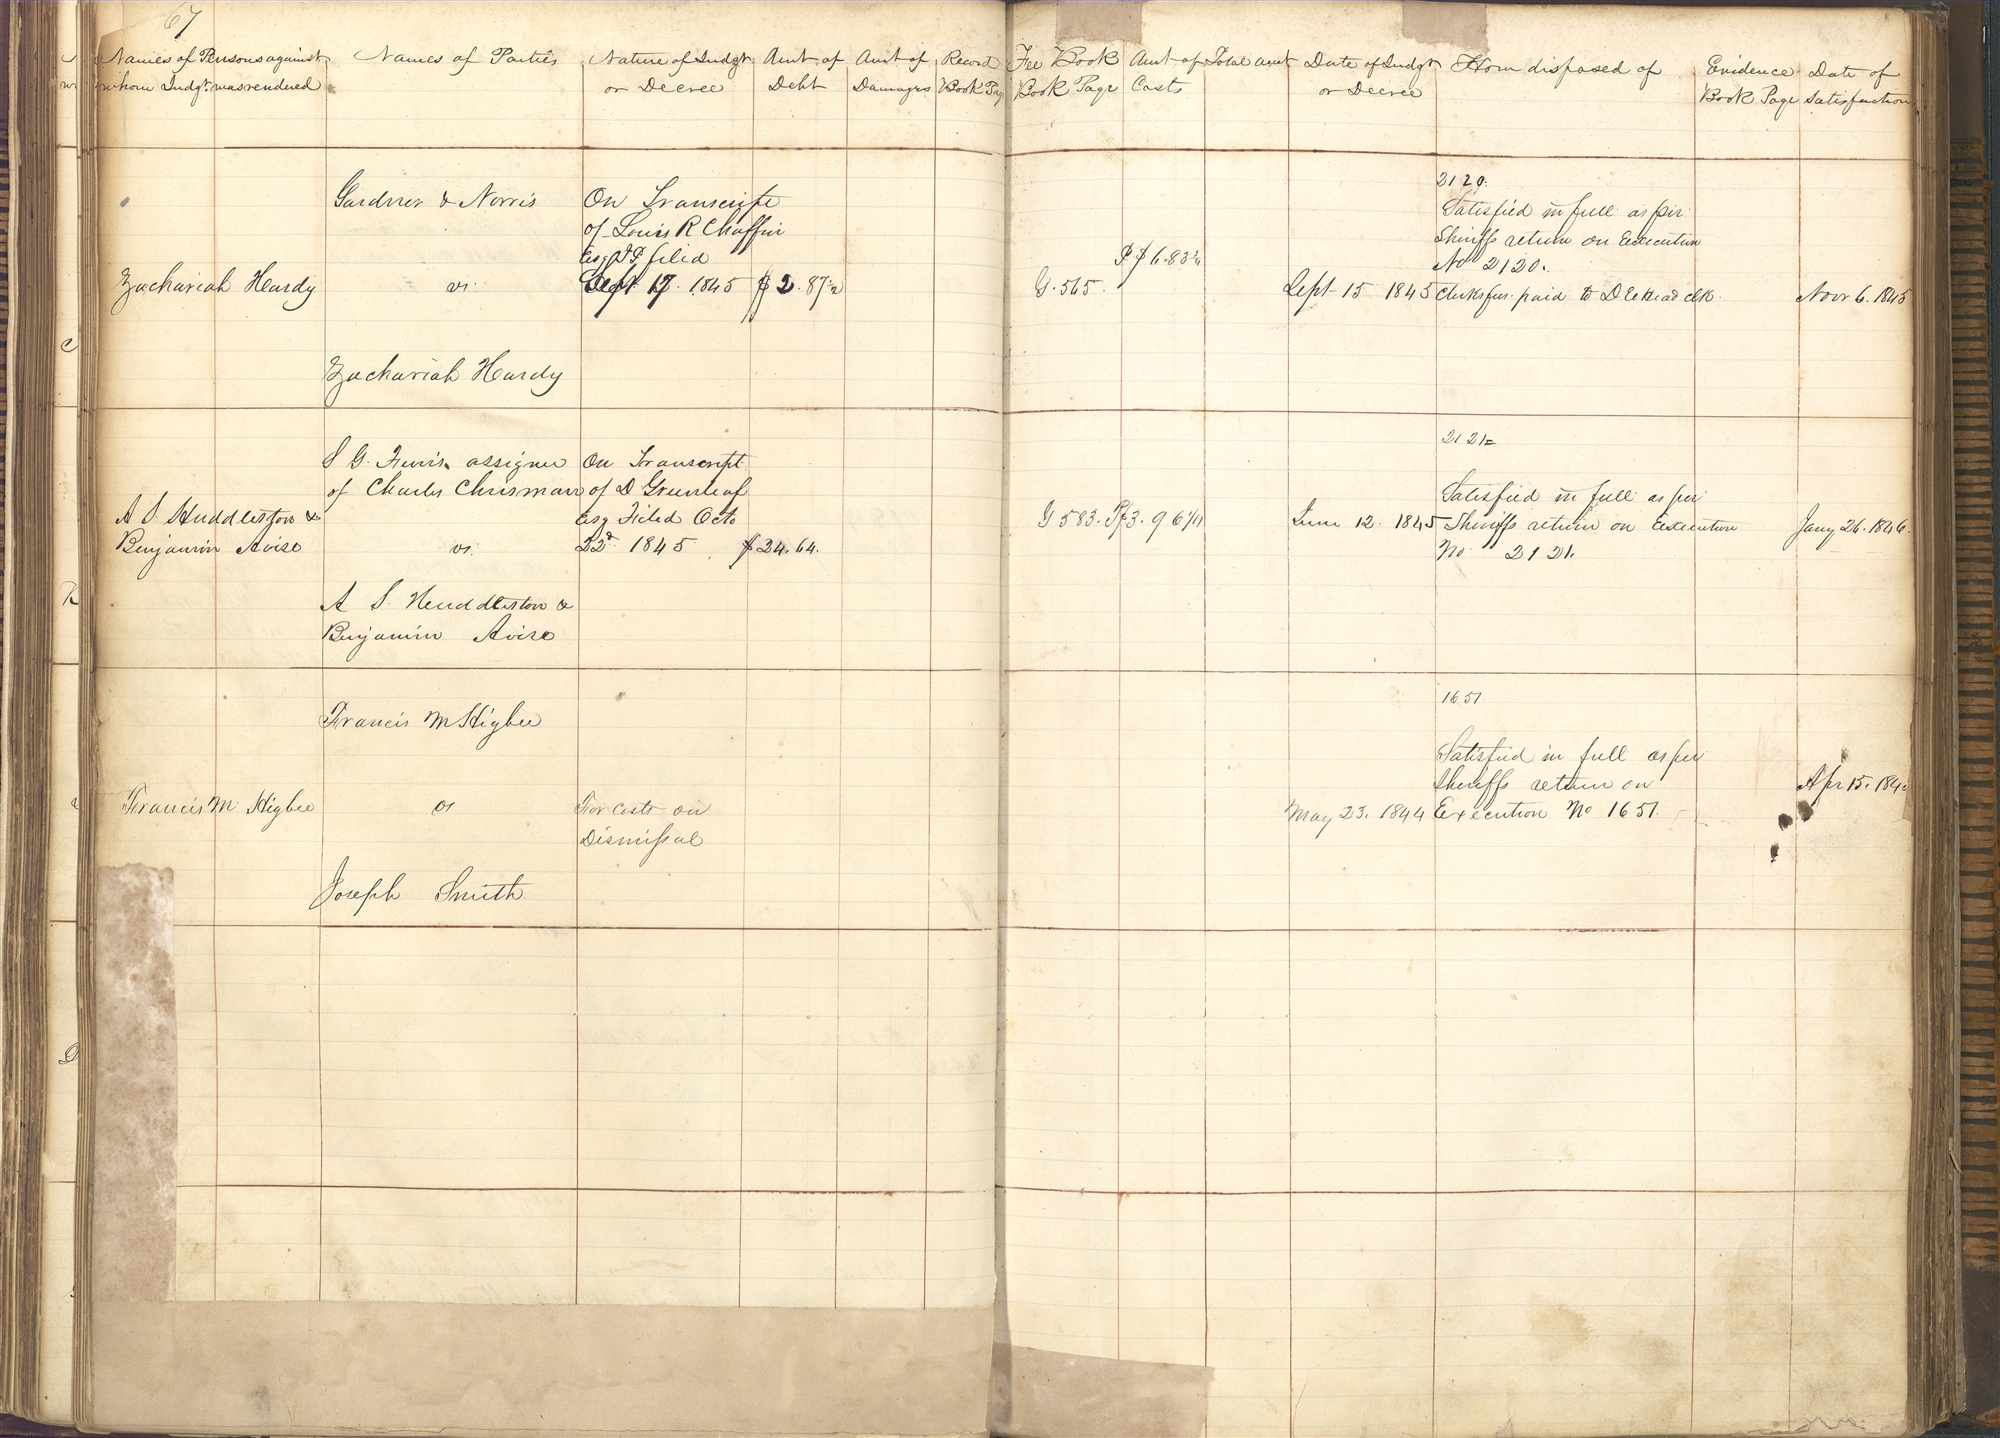 67
Names of Persons against
whom Judgt. was rendered
Names of Parties
Nature of Judgt
or Decree
Amt of
Debt
Amt of
Damages
Record
Book Pag
Fee Book
Book Page
Amt of
Costs
Total amt
Date of Judgt
or Decree
How disposed of
Evidence
Book Page
Date of
Satisfaction
Zachariah Hardy
Gardner & Norris
vs.
Zachariah Hardy
On Transcript
of Louis R Chaffin
Esq JP filed
Sept 17. 1845
$2.87½
G. 565.
$6.83¾
Sept 15 1845
2120.
Satisfied in full as per
Sheriffs return on Execution
No 2120.
Clerks fees paid to D E Head clk.
Novr 6. 1845
A S. Huddleston &
Benjamin Avise
S G. Ferris assignee
of Charles Chrisman
vs.
A S. Huddleston &
Benjamin Avise
On Transcript
of D Greenleaf
Esq Filed Octo
22d 1845
$24.64.
G 583.
June 12. 1845
2121
Satisfied in full as per
Sheriffs return on Execution
No 2121.
Jany 26. 1846.
Francis M. Higbee
Francis M Higbee
vs
Joseph Smith
For costs on
Dismissal
May 23. 1844
1651.
Satisfied in full as per
Sheriffs return on
Execution No 1651.
Apr 15. 184